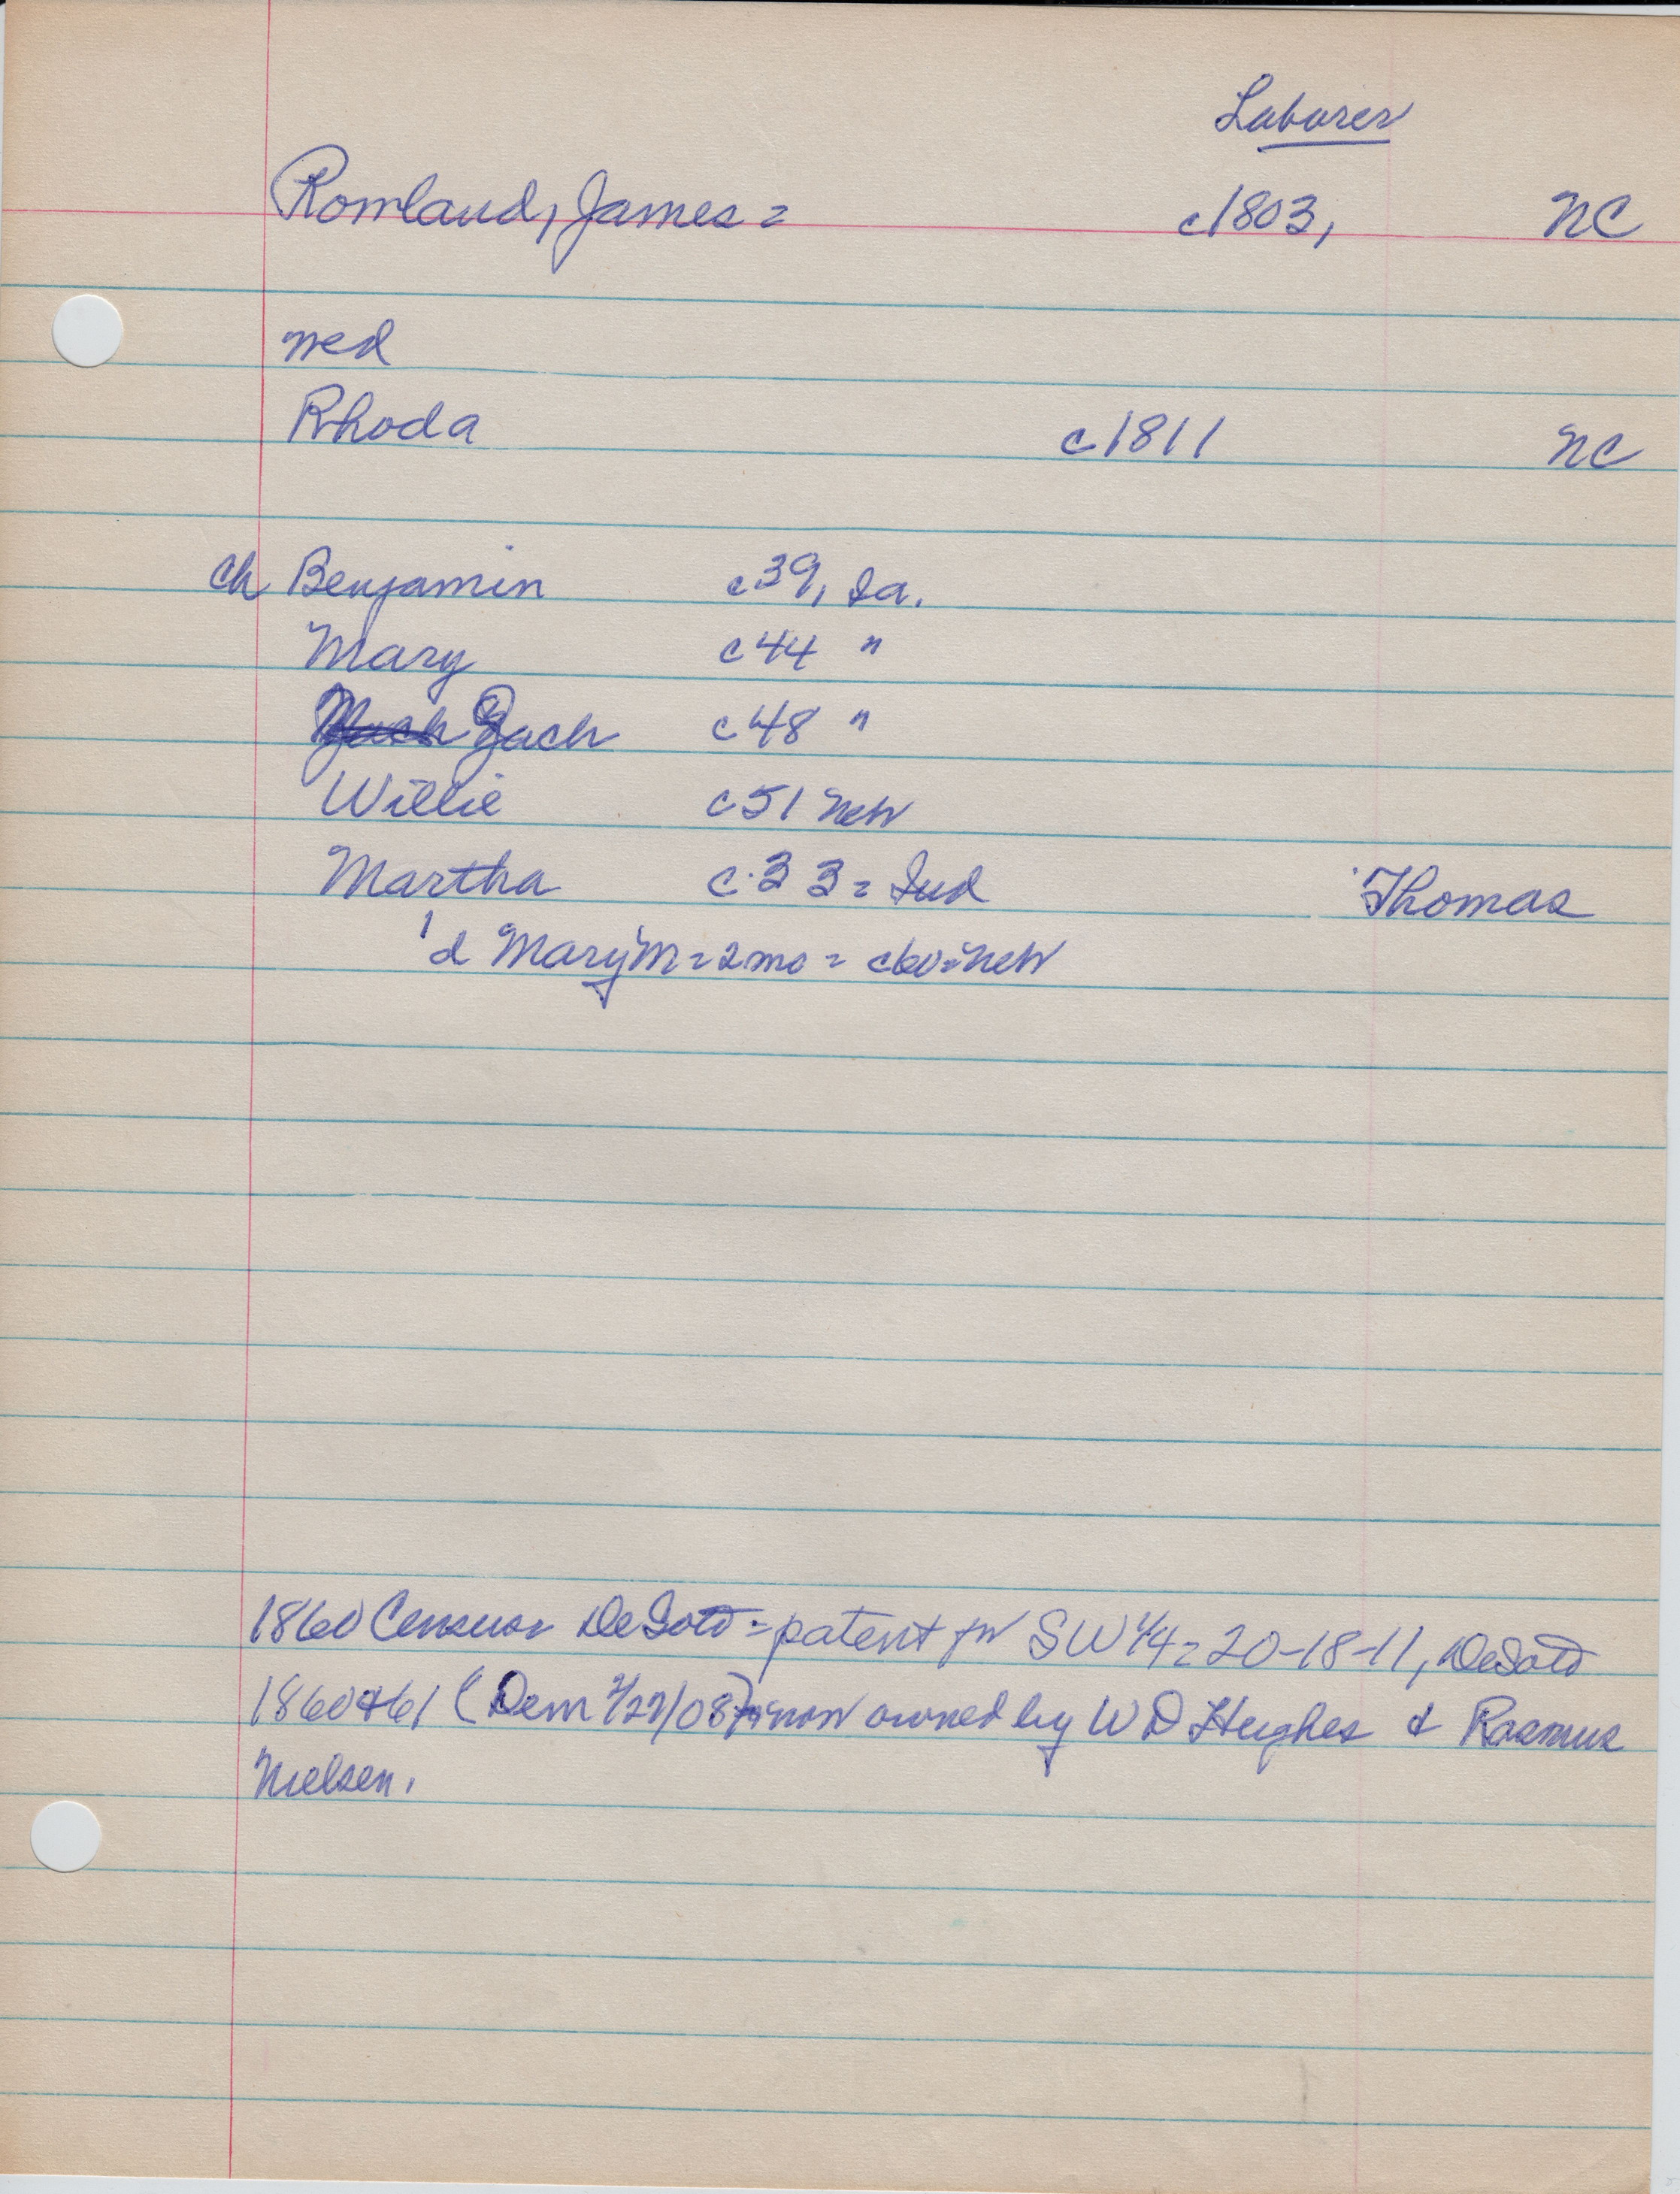 Laborer
Romland, James = c1803, NC
med
Rhoda c1811 NC
ch Benjamin c39, Ia.
Mary c44 "
Zach c48 "
Willie c51 Neb
Martha c.33 = Ind Thomas
1 d Mary M = 2mo = c60 = Neb
1860 Census DeSoto = patent for SW 1/4 = 20-18-11, DeSoto
1860 & 61 (Dem /08) now owned by W D Hughes & Rasmus
Nielsen.